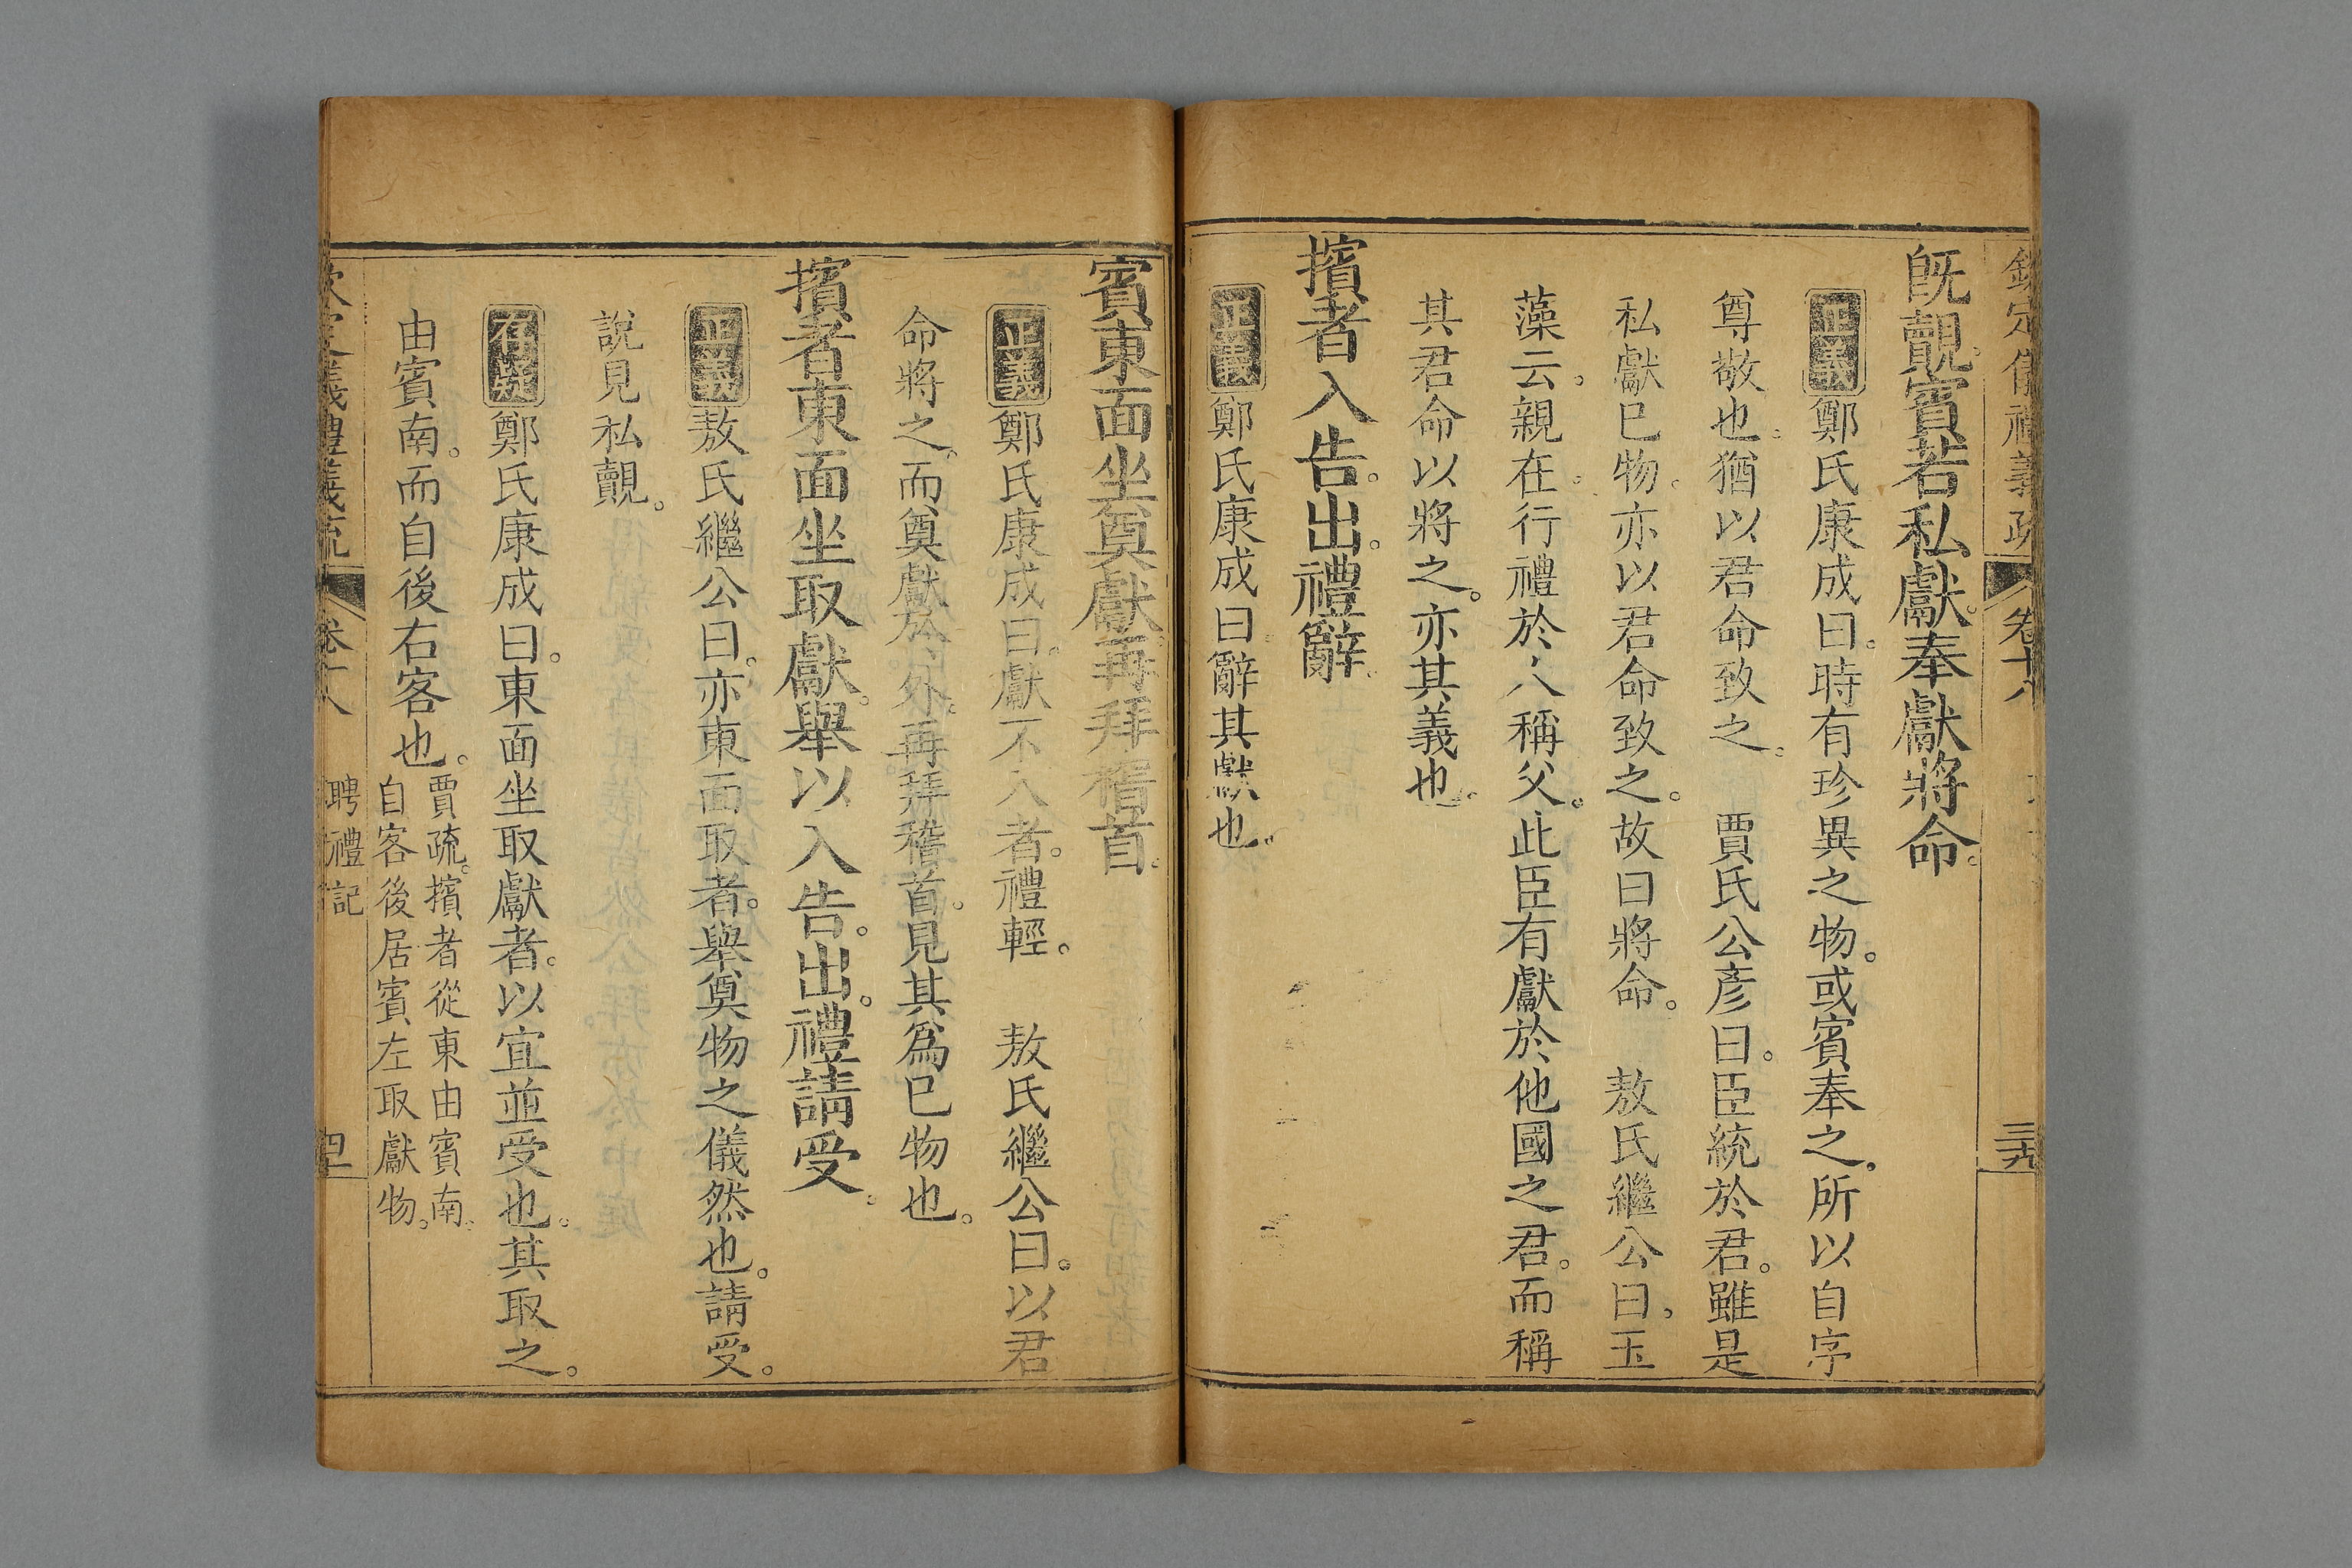 欽定儀禮義疏 卷十八 三九
既覿。賓若私獻。奉獻將命。
正義 鄭氏康成曰。時有珍異之物。或賓奉之。所以自序
尊敬也。猶以君命致之。 賈氏公彥曰。臣統於君。雖是
私獻已物。亦以君命致之。故曰將命。 敖氏繼公曰。玉
藻云。親在。行禮於人稱父。此臣有獻於他國之君。而稱
其君命以將之。亦其義也。
擯者入告。出。禮辭。
正義 鄭氏康成曰。辭其獻也。
賓東面坐奠獻。再拜稽首。
正義 鄭氏康成曰。獻不入者。禮輕。 敖氏繼公曰。以君
命將之。而奠獻於外。再拜稽首。見其爲已物也。
擯者東面坐取獻。舉以入告。出。禮請受。
正義 敖氏繼公曰。亦東面取者。舉奠物之儀然也。請受。
說見私覿。
存疑 鄭氏康成曰。東面坐取獻者。以宜並受也。其取之。
由賓南。而自後右客也。
賈疏。擯者從東由賓南。
自客後居賓左取獻物。
欽定儀禮義疏 卷十八 聘禮記 四十